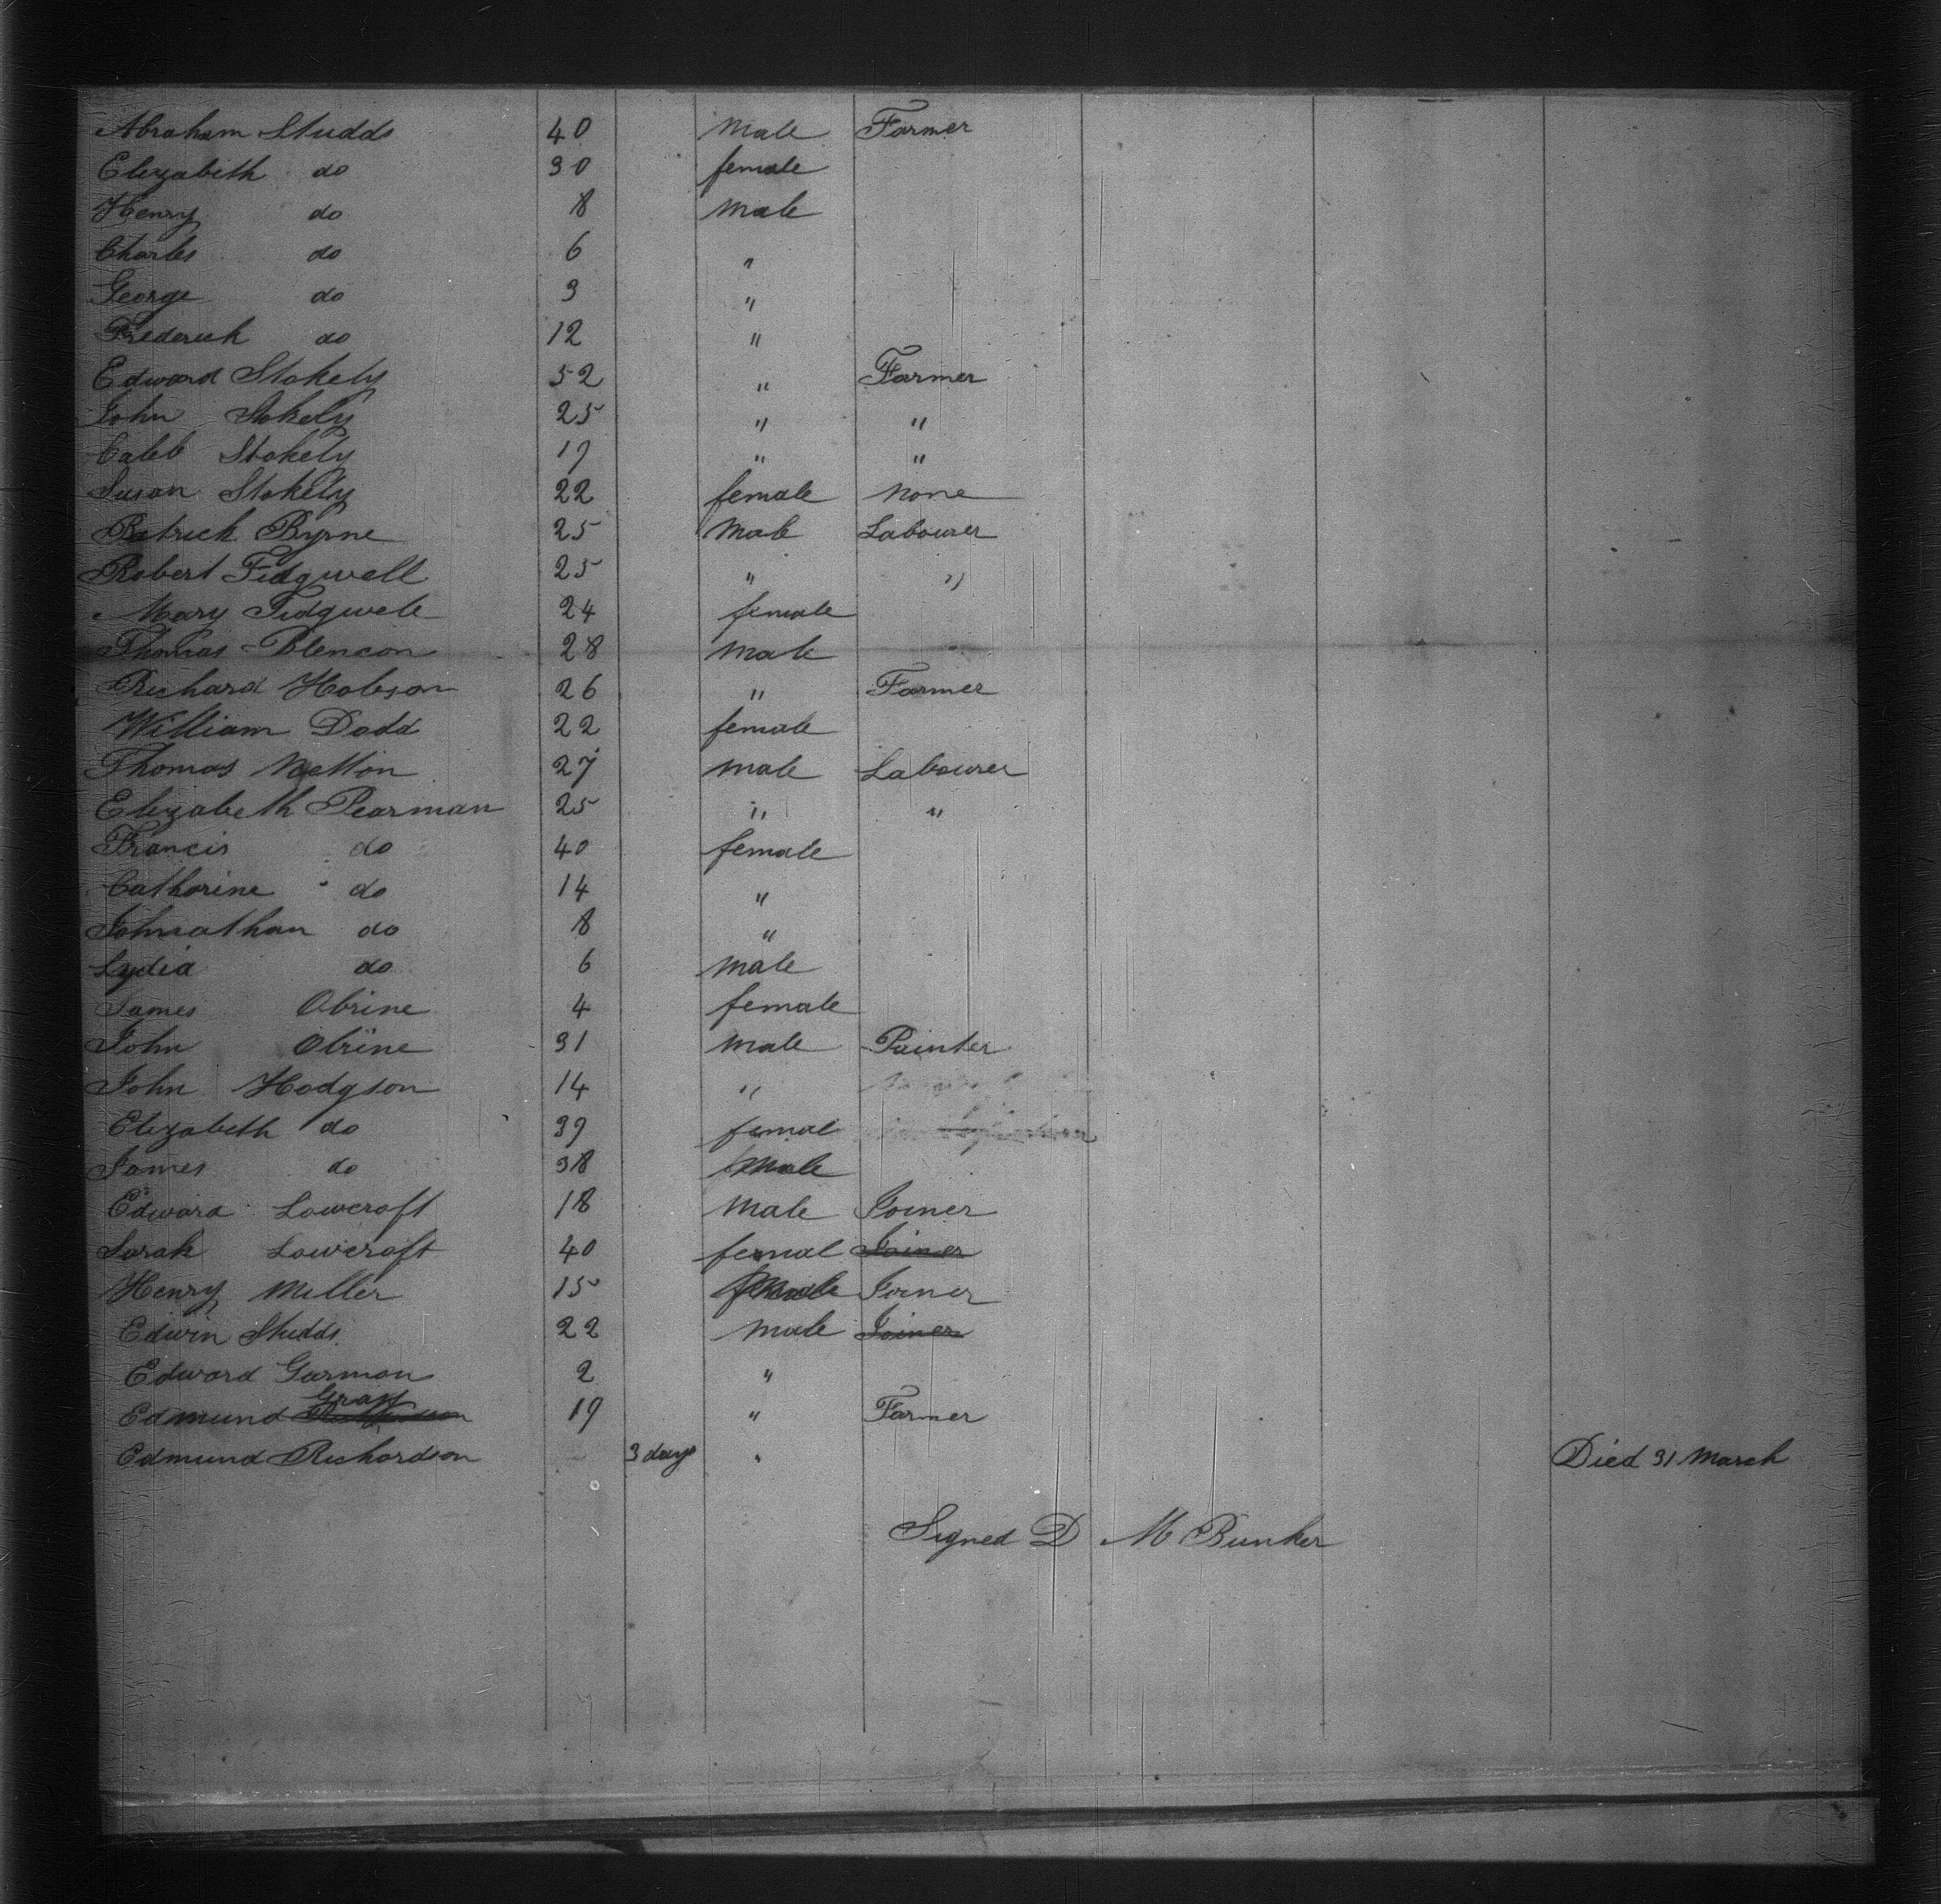 Abraham Studds 40 Male Farmer
Elizabeth do 30 female
Henry do 8 Male
Charles do 6 "
George do 3 "
Frederick do 12 "
Edward Stokely 52 " Farmer
John Stokely 25 " "
Caleb Stokely 19 " "
Susan Stokely 22 female None
Patrick Byrne 25 Male Labourer
Robert Fidgwell 25 " "
Mary Fidgwele 24 female
Thomas Blencon 28 Male
Richard Hobson 26 " Farmer
William Dodd 22 female
Thomas Netton 27 Male Labourer
Elizabeth Pearman 25 " "
Francis do 40 female
Catharine do 14 "
Johnathan do 8 "
Lydia do 6 Male
James Obrine 4 female
John Obrine 31 Male Painter
John Hodgson 14 "
Elizabeth do 39 femal
James do 38 Male
Edward Lowcroft 18 Male Joiner
Sarah Lowcroft 40 femal Joiner
Henry Miller 15 Male Joiner
Edwin Studds 22 Male Joiner
Edward Garmon 2 "
Edmund Gray 19 " Farmer
Edmund Richardson 3 days " Died 31 March
Signed D M Bunker